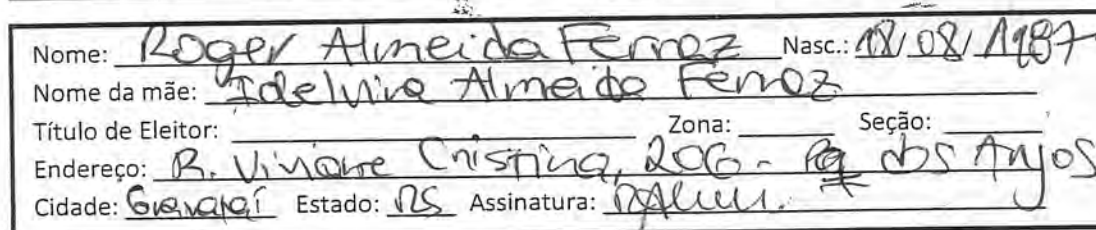 Nome: Roger Almeida Ferraz Nasc.: 18/08/1987
Nome da mãe: Idelvira Almeida Ferraz
Título de Eleitor: Zona: Seção:
Endereço: R. Viviane Cristina, 206 - Pq dos Anjos
Cidade: Gravataí Estado: RS Assinatura: